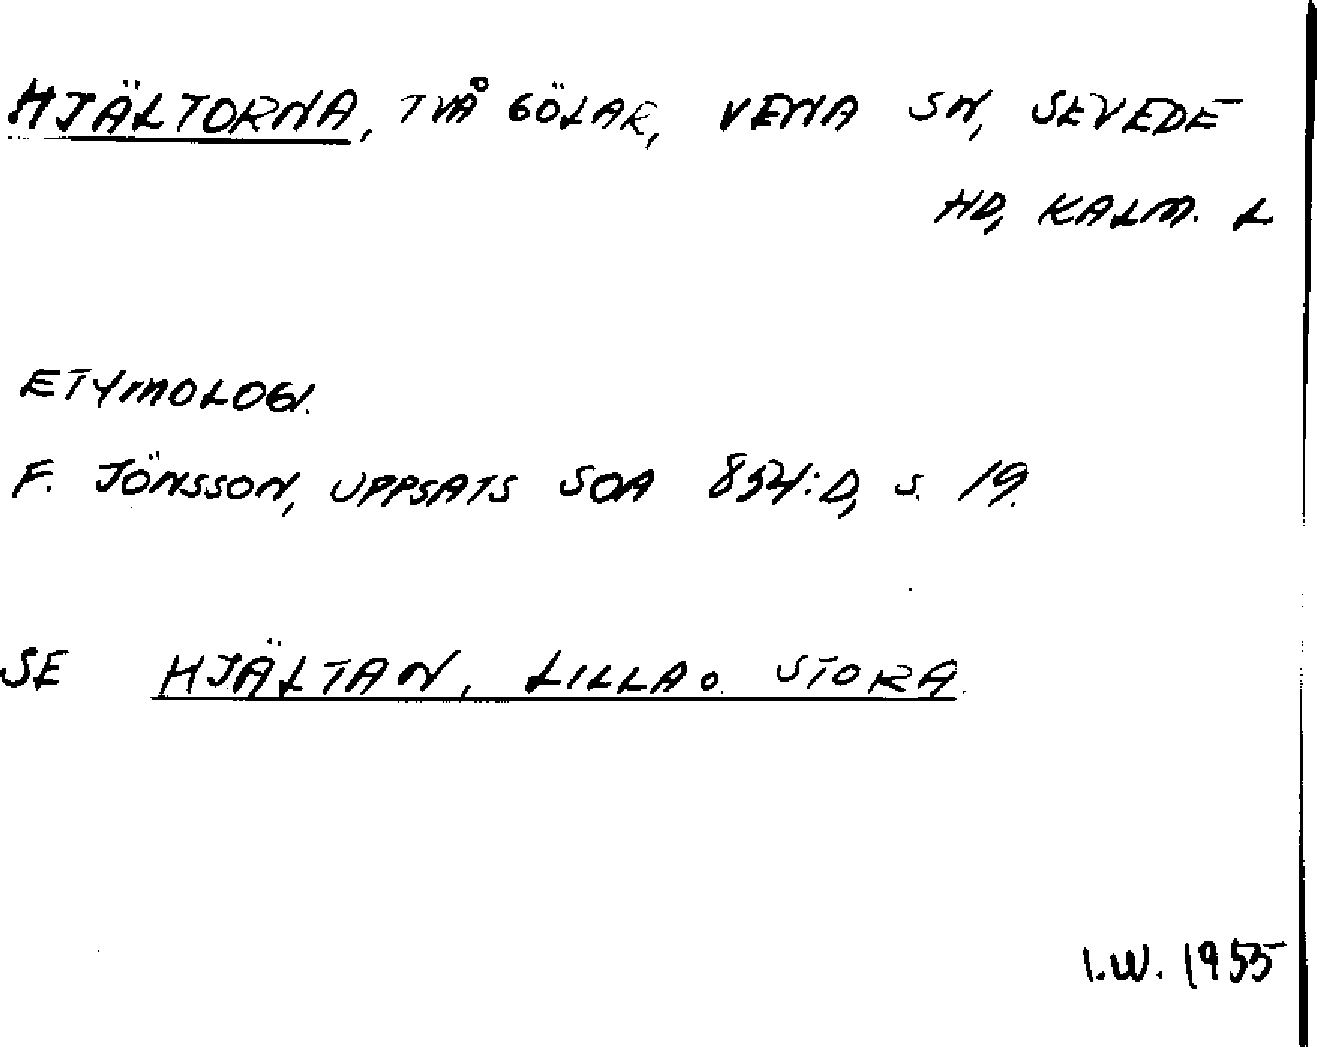 HJÄLTORNA, TVÅ GÖLAR, VENA SN, SEVEDE
HD, KALM. L
ETYMOLOGI.
F. JÖNSSON, UPPSATS SOA 854:D, S. 19.
SE HJÄLTAN, LILLA O. STORA.
I.W. 1955